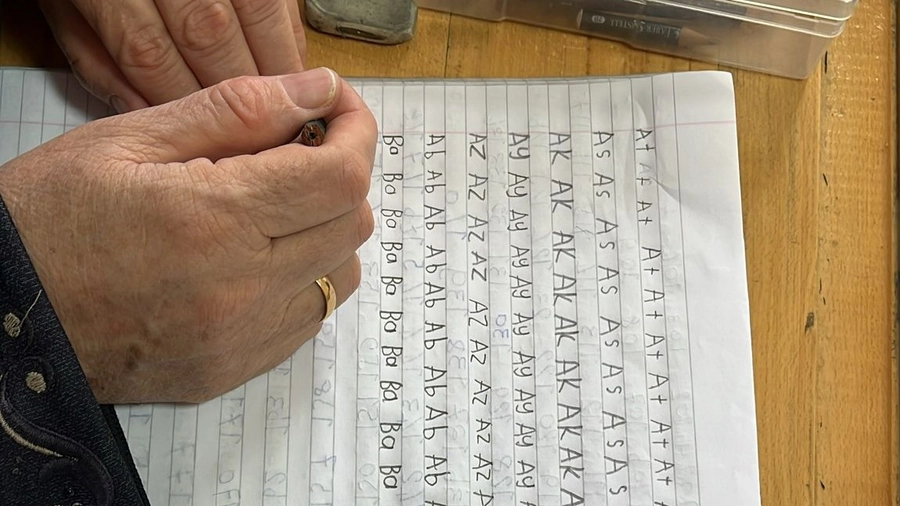 At At At At At At At At At
As As As As As As As As
AK AK AK AK AK AK AK AK A
Ay Ay Ay Ay Ay Ay Ay Ay Ay Ay A
AZ AZ AZ AZ AZ AZ AZ AZ AZ A
Ab Ab Ab Ab Ab Ab Ab Ab Ab A
Ba Ba Ba Ba Ba Ba Ba Ba Ba Ba
FABER-CASTELL